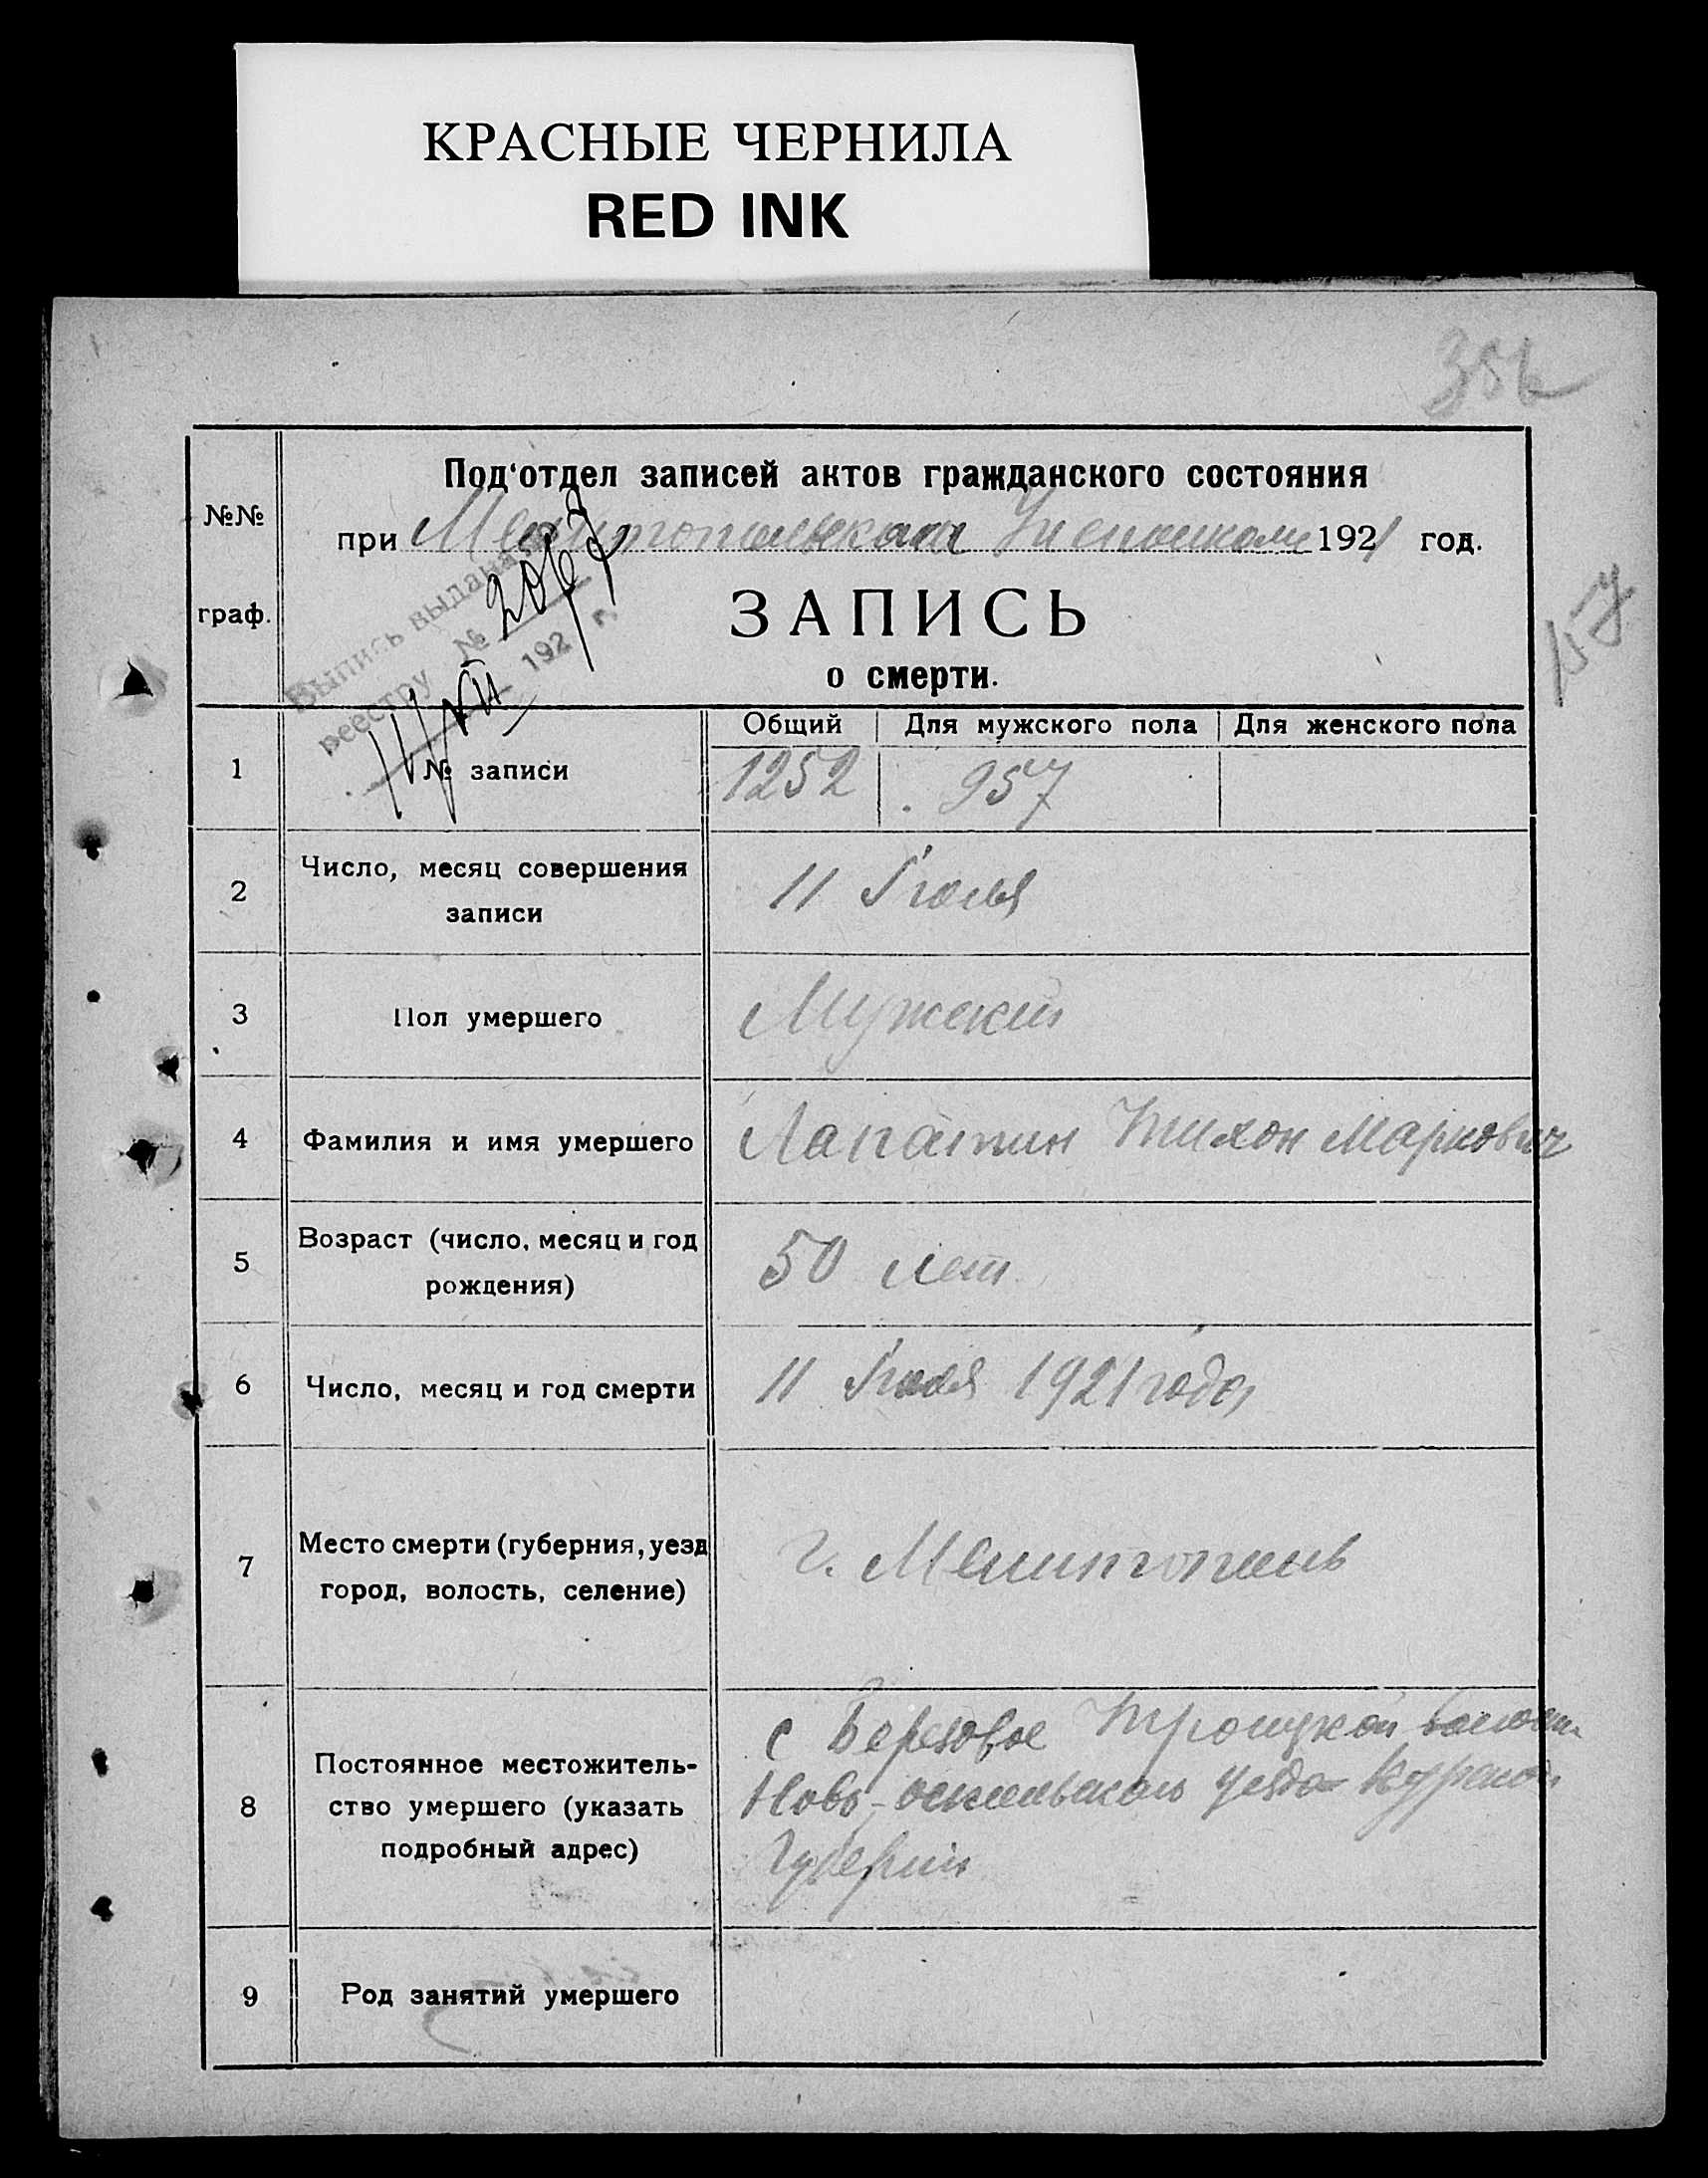 КРАСНЫЕ ЧЕРНИЛА
RED INK
356
Под'отдел записей актов гражданского состояния
№№
граф.
при Мелитопольском 1921 год.
Выпись выдана
реестру № 192 г.
11/VII
157
ЗАПИСЬ
о смерти.
Общий Для мужского пола Для женского пола
1 № записи 1252 957
2 Число, месяц совершения
записи
11 Июля
3 Пол умершего Мужской
4 Фамилия и имя умершего Лапатин Тихон Маркович
5 Возраст (число, месяц и год
рождения)
50 лет
6 Число, месяц и год смерти 11 Июля 1921 года
7 Место смерти (губерния, уезд
город, волость, селение)
г. Мелитополь
8 Постоянное местожитель-
ство умершего (указать
подробный адрес)
с Березовое Троицкой волости
Ново-оскольского уезда Курской
Губернии
9 Род занятий умершего